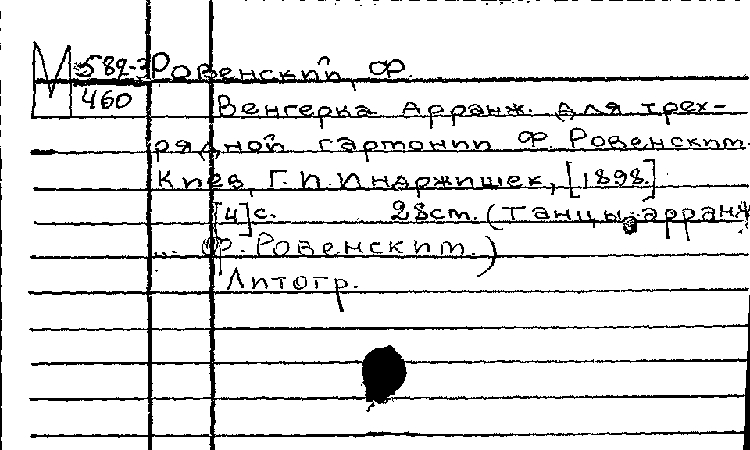 М 589-3 Ровенский, Ф.
460 Венгерка Арранж. для трех-
рядной гармонии Ф. Ровенским.
Киев, Г.П.Индржишек, [1898.]
[4] с. 28 см. (Танцы, арранж
... Ф. Ровенским.)
Литогр.